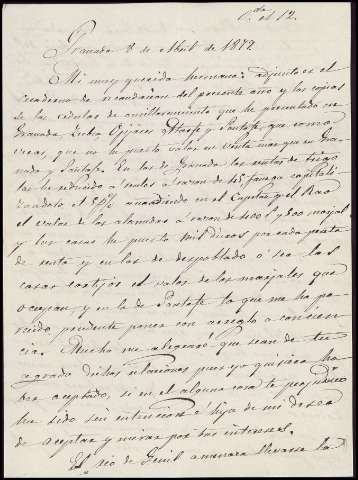 C.da el 12.
Granada 8 de Abril de 1872
Mi muy querida hermana: adjunto es el
cuaderno de recaudacion del presente año y las copias
de las cedulas de amillaramiento que he presentado en
Granada, Ogijares Atarfe y Santafe, que como
veras que no he puesto valor en venta mas que en Gra-
nada y Santafe. En las de Granada las rentas de trigo
las he reducido á reales á razon de 45 fanega capitali-
zandolo al 5 p% aumentando en el Capital y el
el valor de las alamedas á razon de 400 y 500 marjal
y las casas he puesto mil por cada peseta
de renta y en las de despoblado ó sea las
casas cortijos el valor de los marjales que
ocupan, y en la de Santafe lo que me ha pa-
recido prudente poner con arreglo a concien-
cia. Mucho me alegraré que sean de tu
agrado dichas relaciones pues yo quisiera ha-
ber aceptado, si en el alguna cosa te perjudico
ha sido sin intencion é hija de mi deseo
de aceptar y mirar por tus intereses.
El rio de Genil amenaza llevarse la